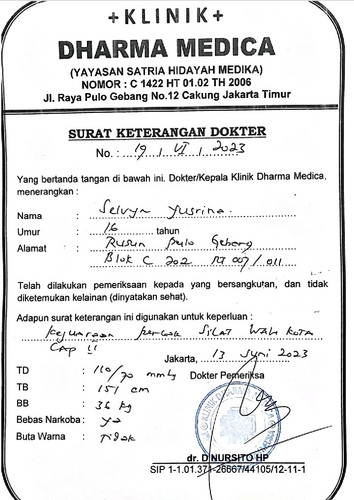 +KLINIK+
DHARMA MEDICA
(YAYASAN SATRIA HIDAYAH MEDIKA)
NOMOR : C 1422 HT 01.02 TH 2006
Jl. Raya Pulo Gebang No.12 Cakung Jakarta Timur
SURAT KETERANGAN DOKTER
No. : 19 / VI / 2023
Yang bertanda tangan di bawah ini. Dokter/Kepala Klinik Dharma Medica,
menerangkan :
Nama : Selvya Yusrina
Umur : 16 tahun
Alamat : Rusun Pulo Gebang
Blok C 202 RT 007 / 011
Telah dilakukan pemeriksaan kepada yang bersangkutan, dan tidak
diketemukan kelainan (dinyatakan sehat).
Adapun surat keterangan ini digunakan untuk keperluan :
Kejuaraan SILAT Wali Kota
Cap II
Jakarta, 13 Juni 2023
TD : 110/70 mmHg Dokter Pemeriksa
TB : 151 cm
BB : 36 kg
Bebas Narkoba : ya
Buta Warna : Tidak
dr. D NURSITO HP
SIP 1-1.01.371-26667/44105/12-11-1